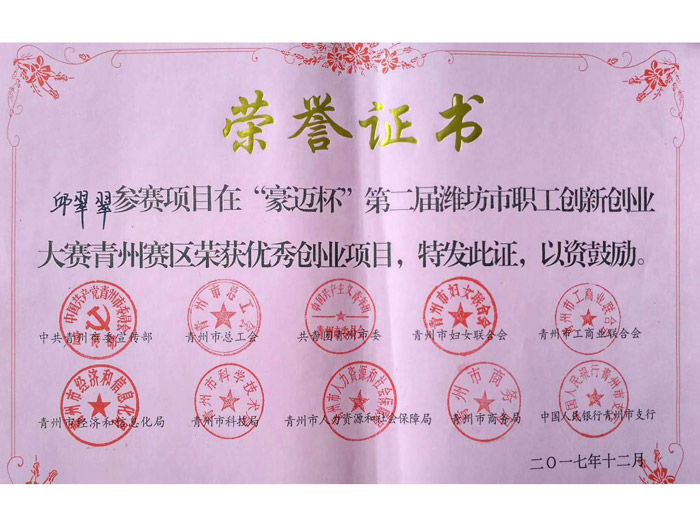 荣誉证书
邱翠翠参赛项目在“豪迈杯”第二届潍坊市职工创新创业
大赛青州赛区荣获优秀创业项目，特发此证，以资鼓励。
中共青州市委宣传部 青州市总工会 共青团青州市委 青州市妇女联合会 青州市工商业联合会
青州市经济和信息化局 青州市科技局 青州市人力资源和社会保障局 青州市商务局 中国人民银行青州市支行
二〇一七年十二月